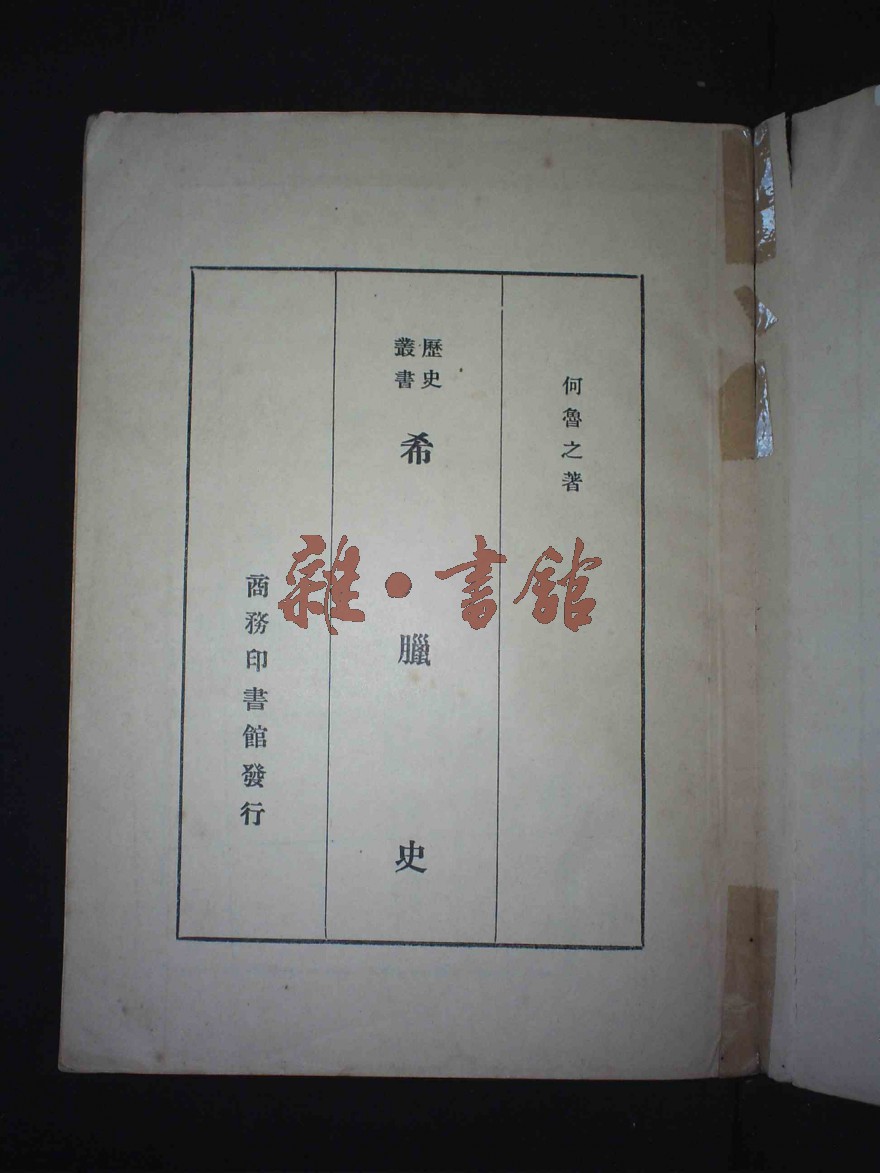 何魯之著
歷史
叢書
希臘史
商務印書館發行
雜·書館